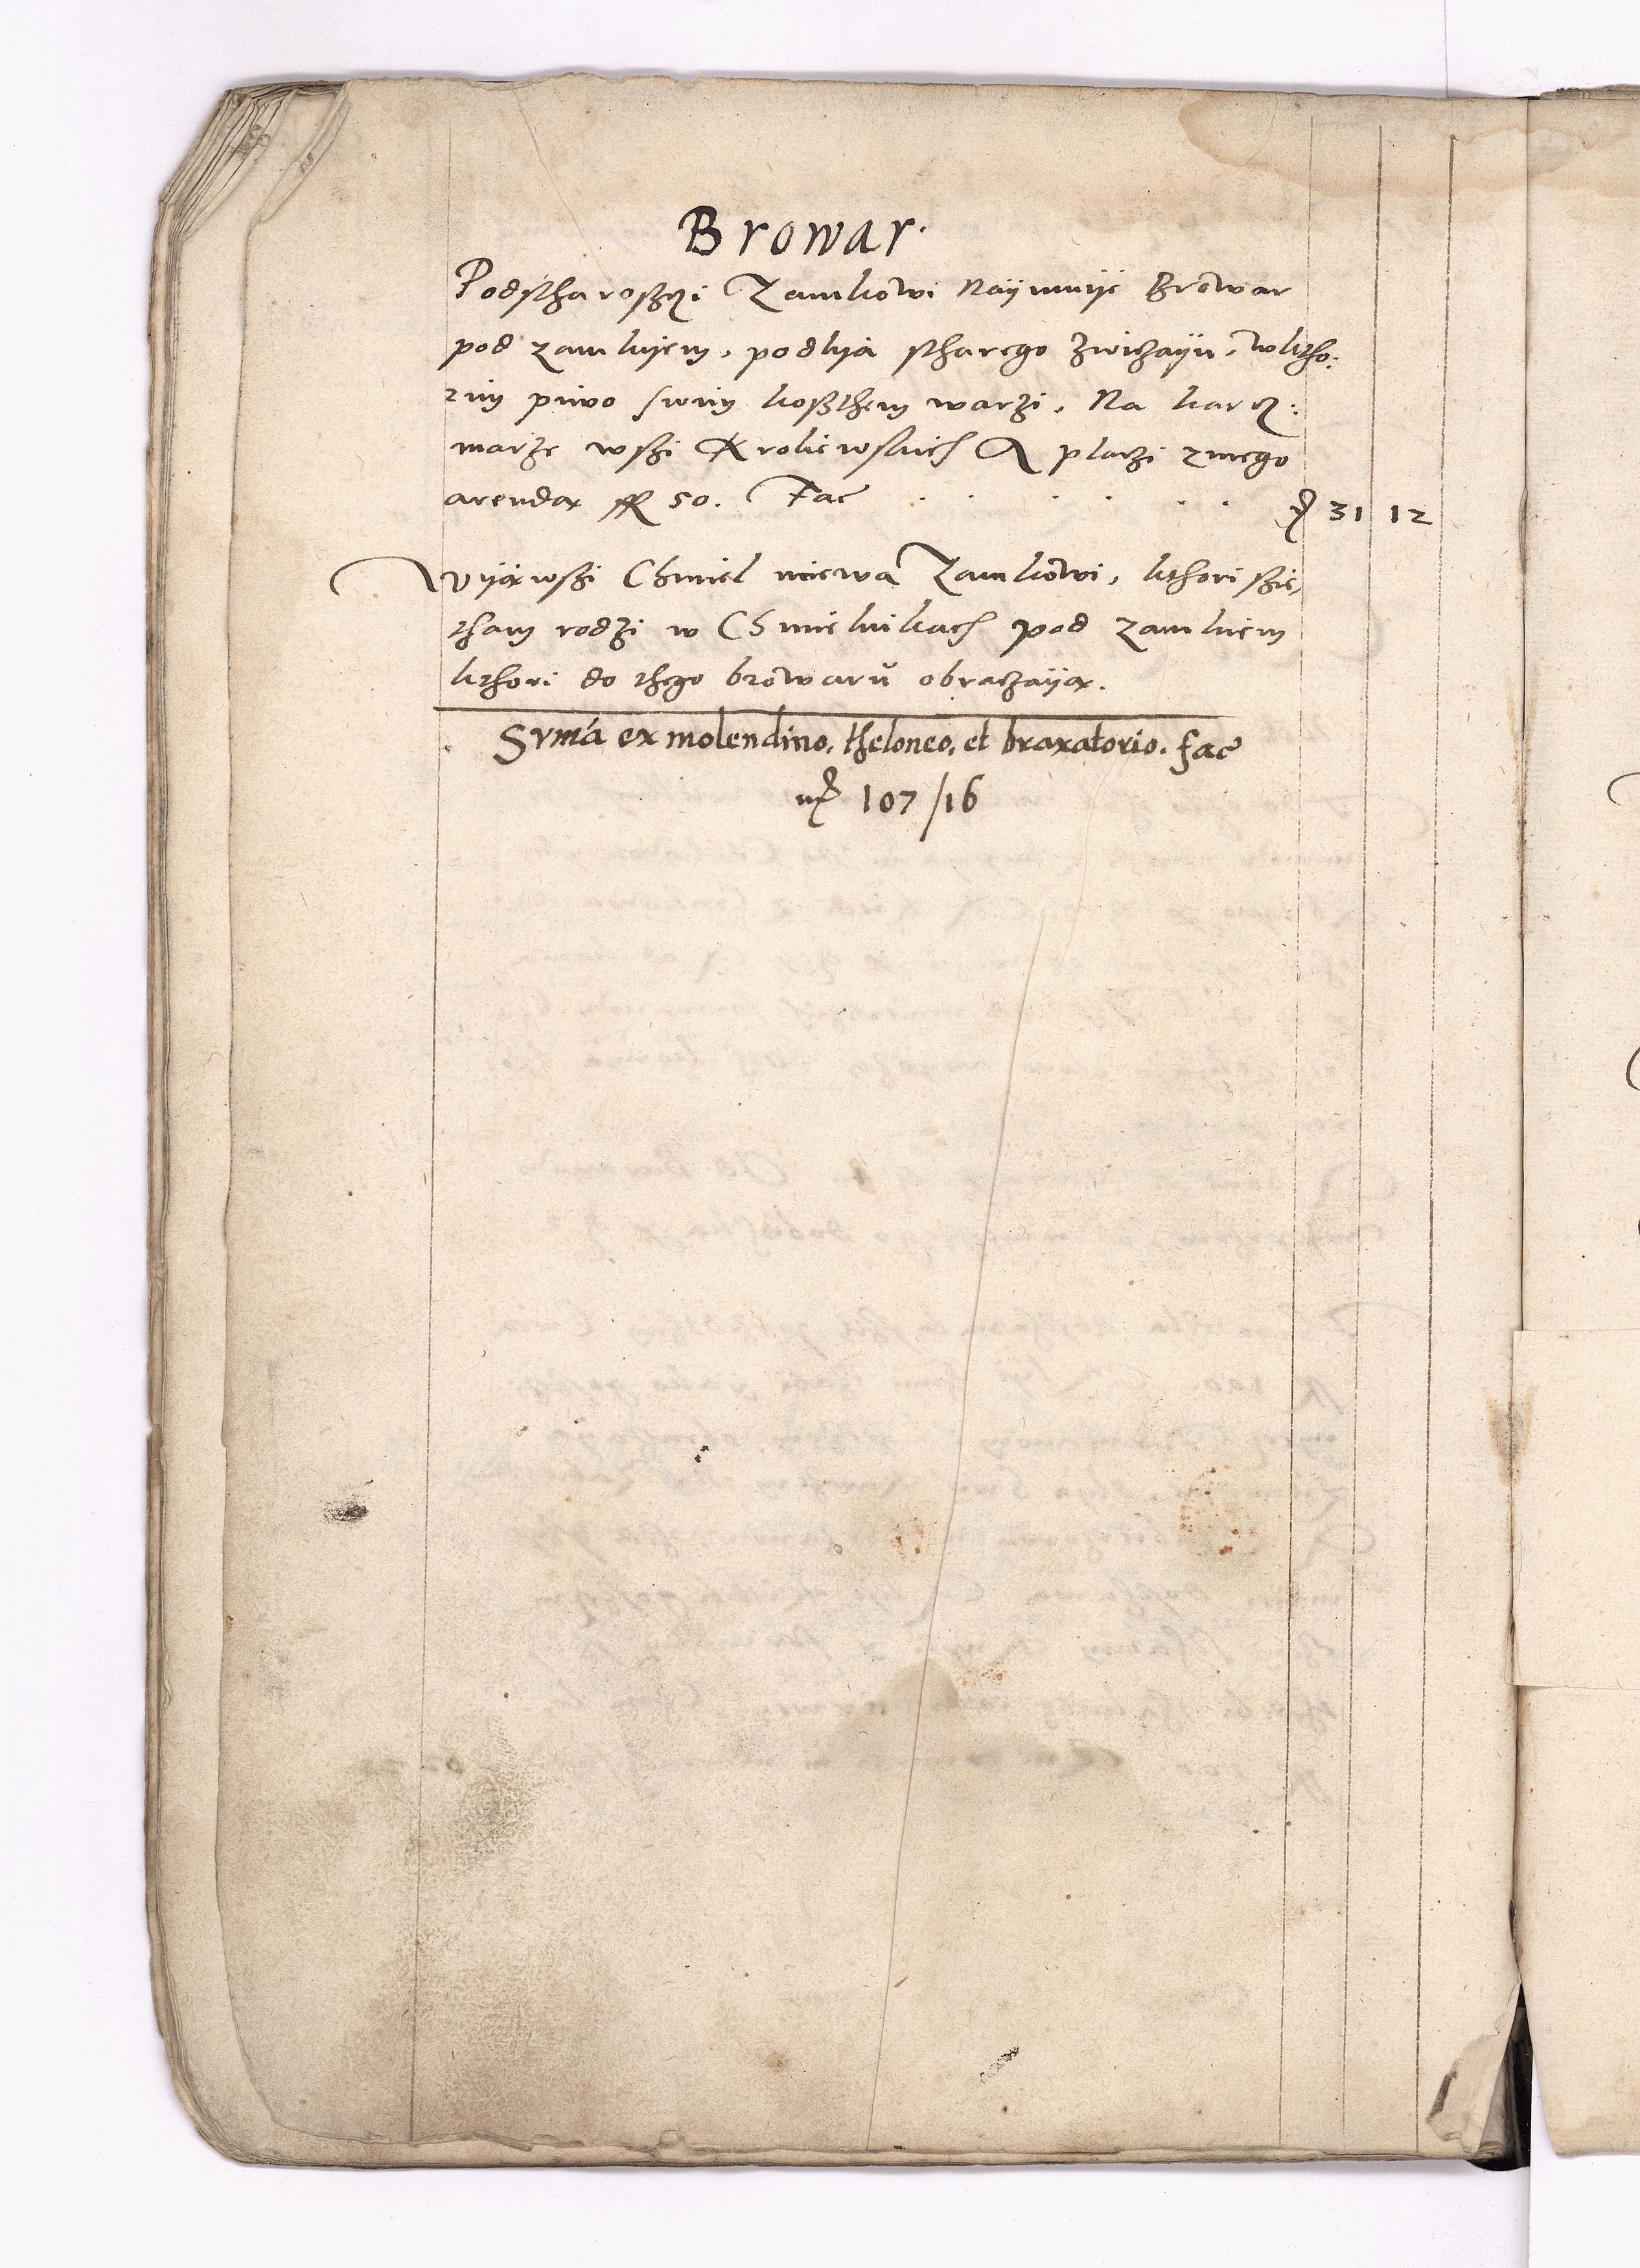 Browar.
Podstharosczi Zamkowi Naymuye Browar
pod zamkyem, podlya starego zwiczayu, wktho:
rim piwo swim kosthem warzi, Na karcz:
marze wszi Krolewskich A placzi znego
arenda 50. Fac
31 12
Chmiel miewa Zamkowi, kthori szie,
tham rodzi w Chmielnikach pod zamkiem
kthori do thego browarŭ obraczaya.
Syma ex molendino, theloneo, et braxatorio. fac
107/16